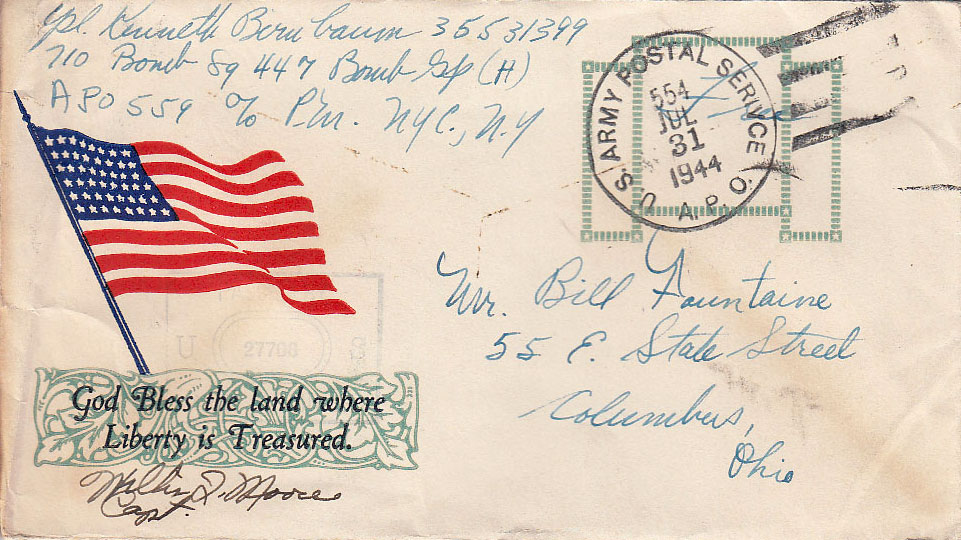 Cpl. Kenneth Birnbaum 35531399
710 Bomb Sq 447 Bomb Gp (H)
APO 559 c/o P.M. NYC., N.Y
U.S. ARMY POSTAL SERVICE A.P.O.
554
JUL
31
1944
Free
Mr. Bill Fountaine
55 E. State Street
Columbus,
Ohio
U 27706 S
God Bless the land where
Liberty is Treasured.
Moore
Capt.